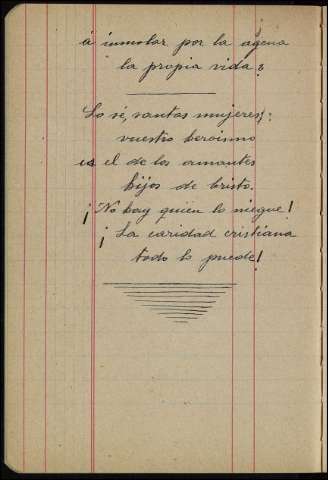 á inmolar por la agena
la propia vida?
Lo sé, santas mujeres;
vuestro heroismo
es el de los amantes
hijos de Cristo.
¡No hay quien lo niegue!
¡La caridad cristiana
todo lo puede!